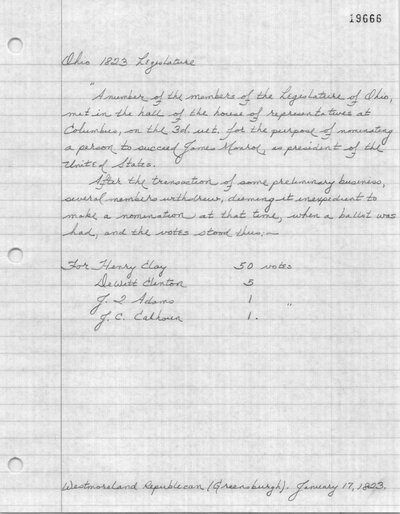 19666
Ohio 1823 Legislature
"A number of the members of the Legislature of Ohio,
met in the hall of the house of representatives at
Columbus, on the 3d ust. for the purpose of nominating
a person to succeed James Monroe, as president of the
United States.
After the transaction of some preliminary business,
several members withdrew, deeming it inexpedient to
make a nomination at that time, when a ballot was
had, and the votes stood thus;—
For Henry Clay 50 votes
DeWitt Clinton 5
J. Q Adams 1 "
J. C. Calhoun 1.
Westmoreland Republican (Greensburgh). January 17, 1823.